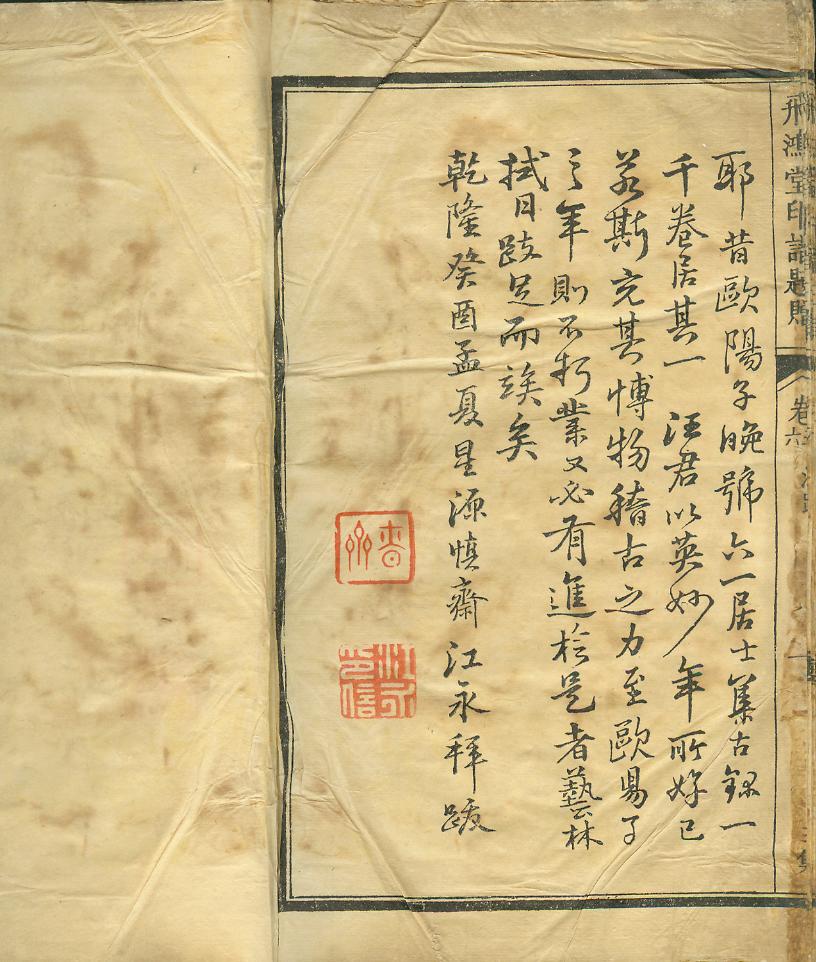 飛鴻堂印譜題贈
卷六
耶昔歐陽子晚號六一居士集古錄一
千卷居其一 汪君以英妙年所好已
若斯充其博物稽古之力至歐陽子
之年則不朽業又必有進於是者藝林
拭目跂足而竢矣
乾隆癸酉孟夏星源慎齋江永拜跋
江永
印信